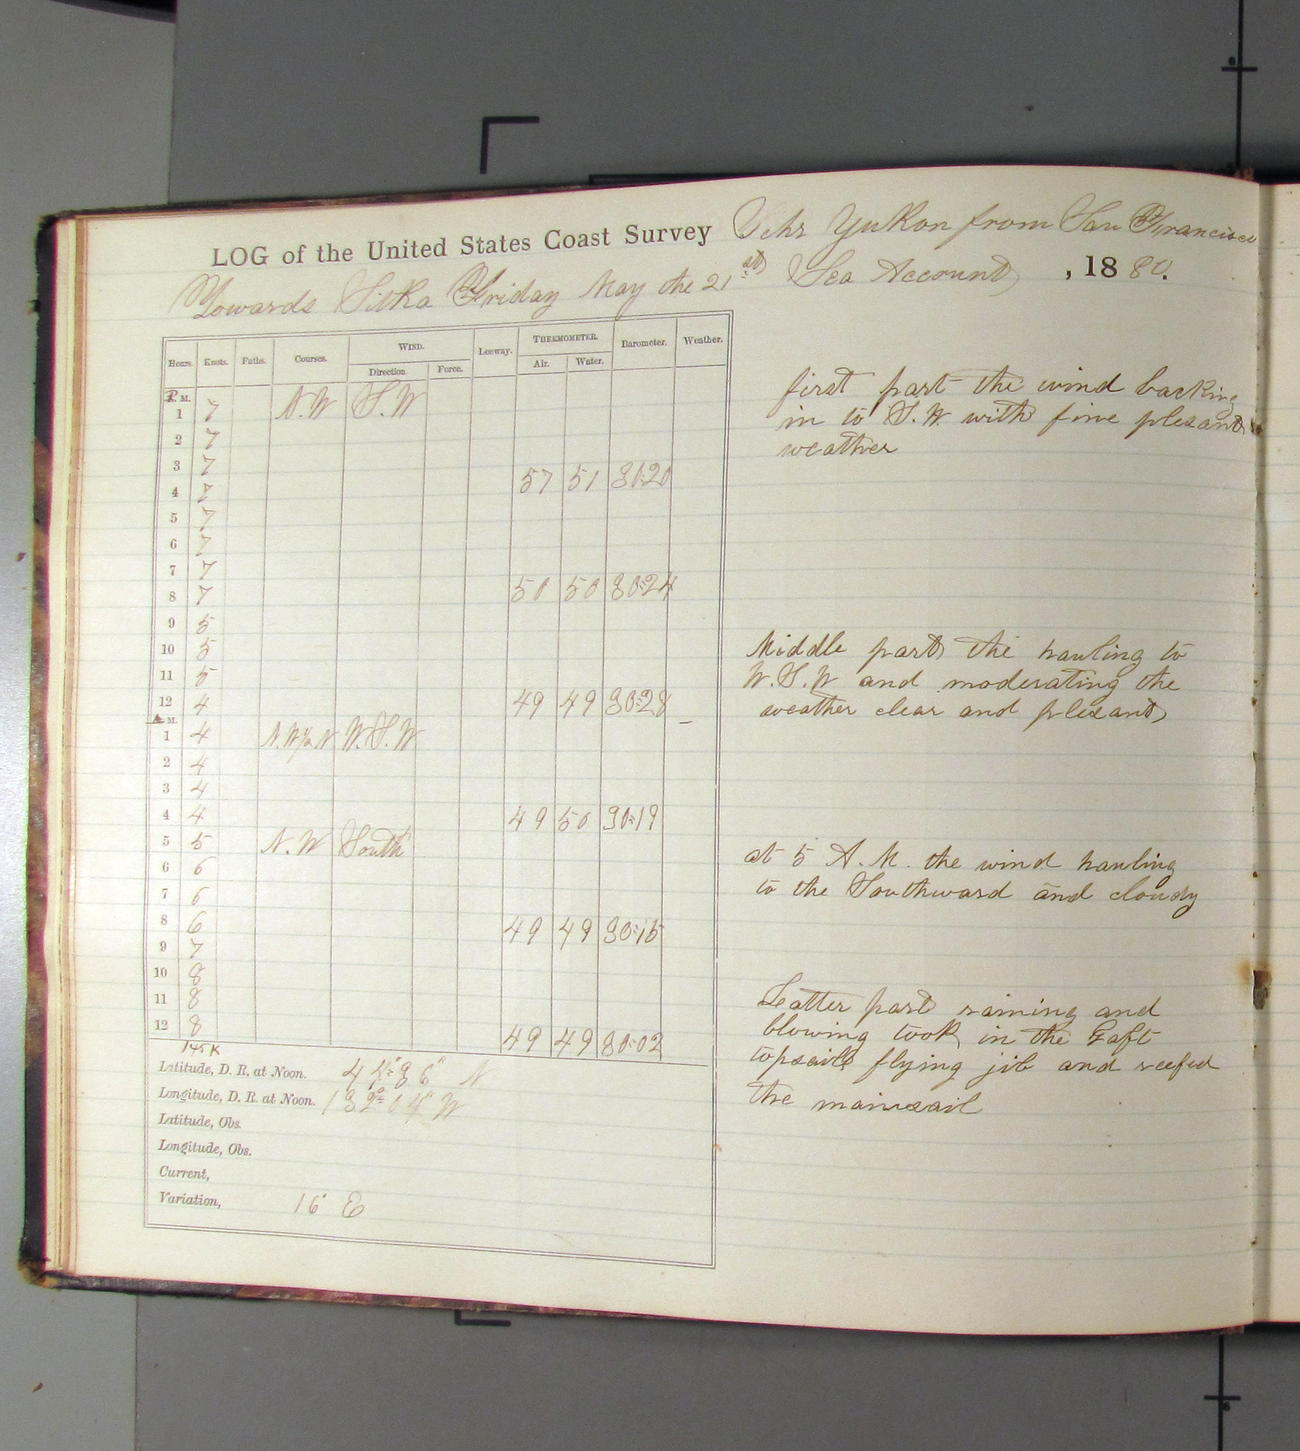 LOG of the United States Coast Survey Schr Yukon from San Francisco
Towards Sitka Friday May the 21st Sea Account, 1880.
Hours. Knots. Faths. Courses. WIND. Leeway. THERMOMETER. Barometer. Weather.
Direction. Force. Air. Water.
P.M.
1 7 N.W S.W
2 7
3 7
4 7 57 51 30:20
5 7
6 7
7 7
8 7 50 50 30:24
9 5
10 5
11 5
12 4 49 49 30:28
A.M.
1 4 N.W W.S.W
2 4
3 4
4 4 49 50 30:19
5 5 N.W South
6 6
7 6
8 6 49 49 30:15
9 7
10 8
11 8
12 8 49 49 30:02
145 K
Latitude, D. R. at Noon. N
Longitude, D. R. at Noon. 132° 04" W
Latitude, Obs.
Longitude, Obs.
Current,
Variation, 16° E
first part the wind backing
in to S.W. with fine plesant
weather
Middle part the hauling to
W.S.W and moderating the
weather clear and plesant
at 5 A.M. the wind hauling
to the Southward and cloudy
Latter part raining and
blowing took in the Gaft
topsails flying jib and reefed
the mainsail